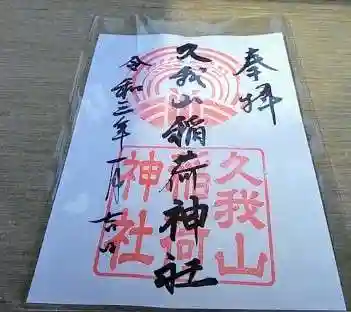 奉拝
久我山稲荷神社
令和三年一月吉日
久我山
稲荷
神社